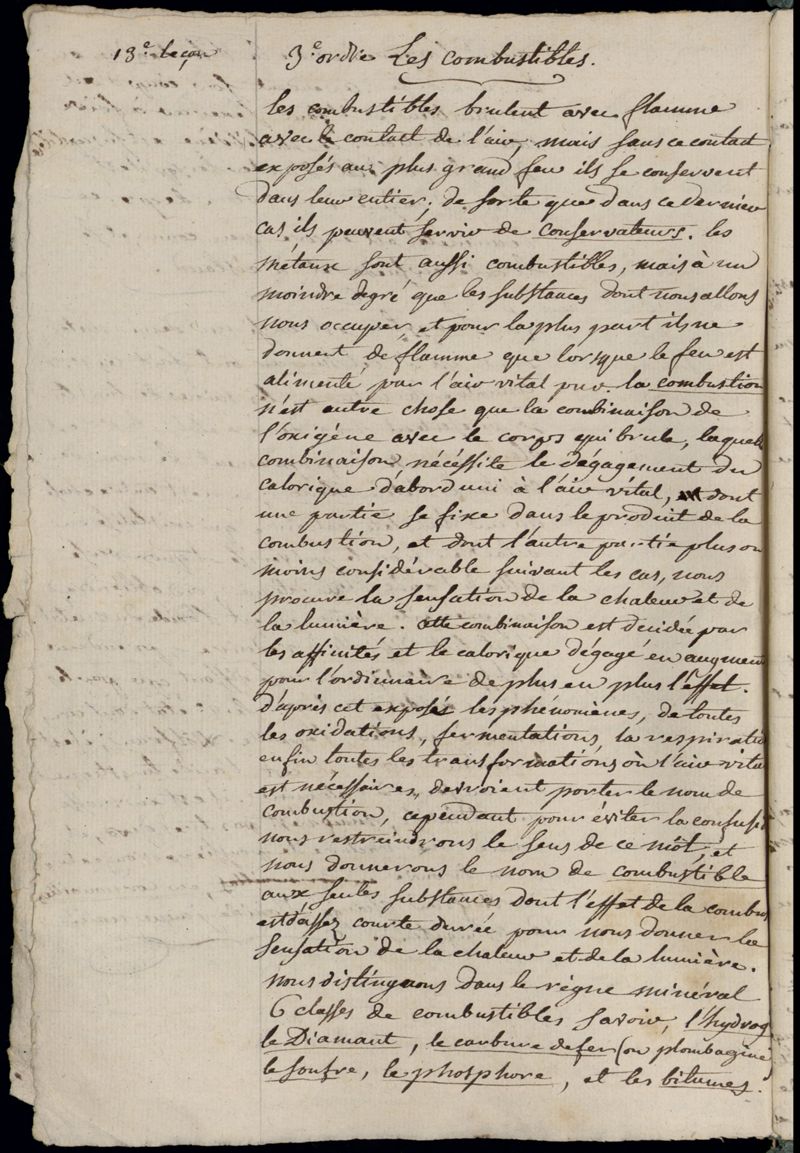 13.e leçon
3.e ordre Les combustibles.
les combustibles brulent avec flamme
avec le contact de l'air, mais sans ce contact
exposés au plus grand feu ils se conservent
dans leur entier; de sorte que dans ce dernier
cas ils peuvent servir de conservateurs. les
métaux sont aussi combustibles, mais à un
moindre degré que les substances dont nous allons
nous occuper, et pour la plus part ils ne
donnent de flamme que lorsque le feu est
alimenté par l'air vital pur. la combustion
n'est autre chose que la combinaison de
l'oxigéne avec le corps qui brule, laquelle
combinaison nécéssite le dégagement du
calorique d'abord uni à l'air vital, dont
une partie se fixe dans le produit de la
combustion, et dont l'autre partie plus ou
moins considérable suivant les cas, nous
procure la sensation de la chaleur et de
la lumière. cette combinaison est decidée par
les affinités et le calorique dégagé en augment
pour l'ordinnaire de plus en plus l'effet.
d'après cet exposé les phénomènes, de toutes
les oxidations, fermentations, la respiratio
enfin toutes les transformations où l'air vital
est nécéssaire, devroient porter le nom de
combustion, cependant pour éviter la confusi
nous restreindrons le sens de ce mot, et
nous donnerons le nom de combustible
aux seules substances dont l'effet de la combus
est d'assez courte durée pour nous donner la
sensation de la chaleur et de la lumière.
nous distinguons dans le règne minéral
6 classes de combustibles savoir, l'hydrog
le Diamant, le carbure de fer (ou plombagine)
le soufre, le phosphore, et les bitumes.